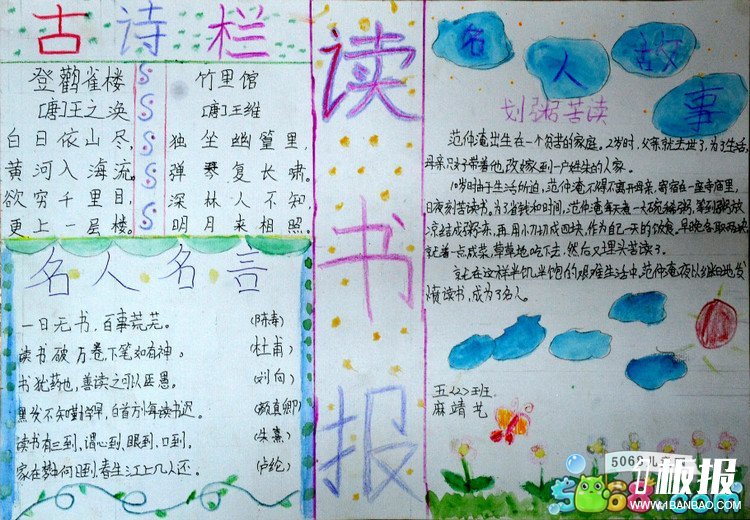 古诗栏
登鸛雀楼
[唐]王之涣
白日依山尽,
黄河入海流。
欲穷千里目,
更上一层楼。
竹里馆
[唐]王维
独坐幽篁里,
弹琴复长啸。
深林人不知,
明月来相照。
名人名言
一日无书,百事荒芜。(陈寿)
读书破万卷,下笔如有神。(杜甫)
书犹药也,善读之可以医愚。(刘向)
黑发不知勤学早,白首方悔读书迟。(颜真卿)
读书有三到,谓心到、眼到、口到。(朱熹)
家在梦中何日到,春生江上几人还。(卢纶)
读书报
名人故事
划粥苦读
范仲淹出生在一个贫苦的家庭。2岁时,父亲就去世了,为了生活,
母亲只好带着他改嫁到一户姓朱的人家。
10岁时由于生活所迫,范仲淹不得不离开母亲,寄宿在一座寺庙里,
日夜刻苦读书。为了省钱和时间,范仲淹每天煮一大碗稀粥,等到粥放
冷结成粥冻,再用小刀切成四块,作为自己一天的饮食,早晚各取两块
就着一点咸菜,草草地吃下去,然后又埋头苦读了。
就在这样半饥半饱的艰难生活中,范仲淹夜以继日地发
愤读书,成为了名人。
五<2>班
麻靖艺
5068儿童网
5068.com
板报
WWW.1BANBAO.COM